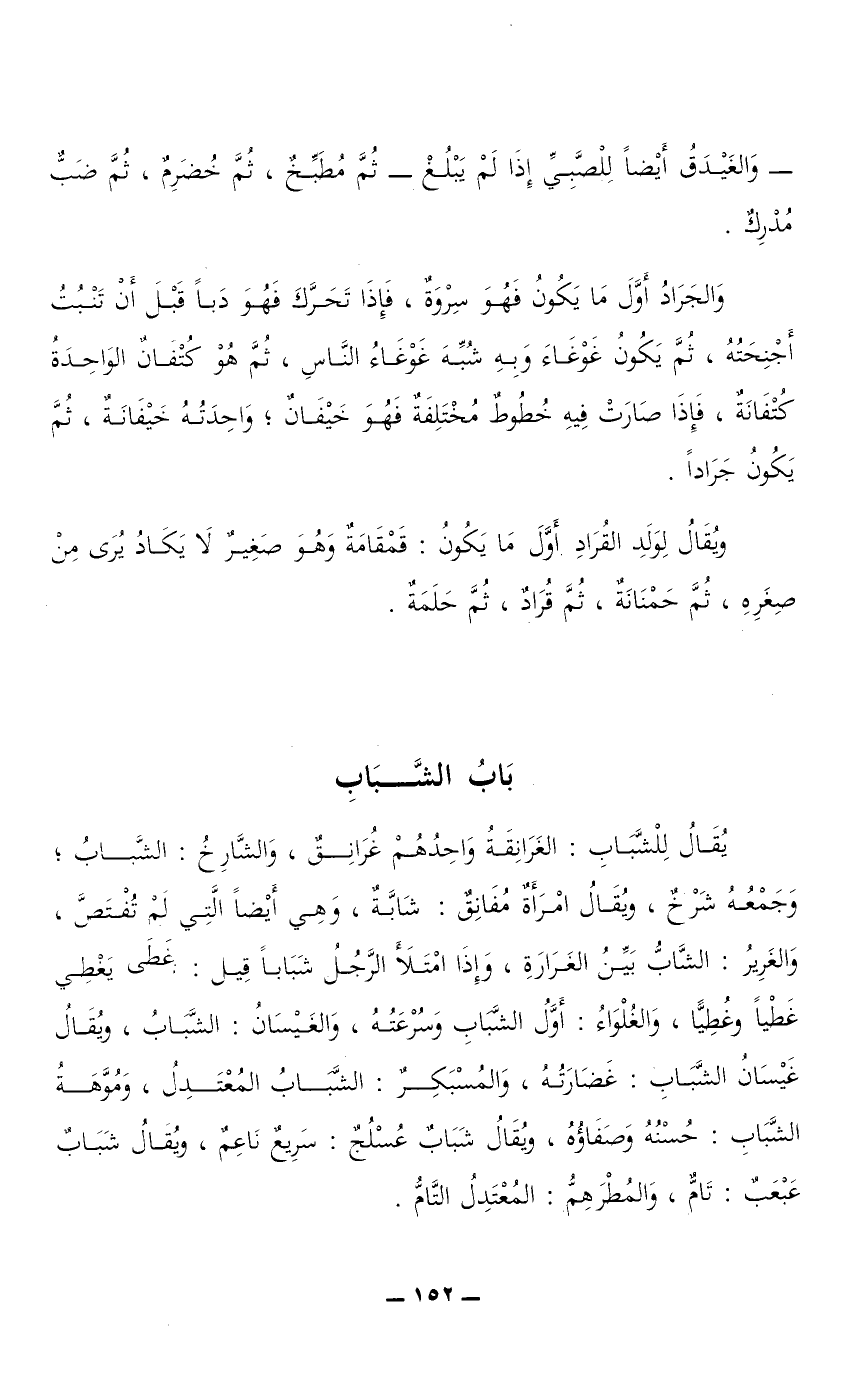 ــ وَالغَيْـدَقُ أَيْضاً لِلْصَّبِـيِّ إِذَا لَمْ يَبْلُـغْ ــ ثُمَّ مُطَبِّـخٌ ، ثُمَّ خُضَرِمٌ ، ثُمَّ ضَبٌّ
مُدْرِكٌ .
وَالجَرَادُ أَوَّلَ مَا يَكُونُ فَهُـوَ سِرْوَةٌ ، فَإِذَا تَحَـرَّكَ فَهُـوَ دَبـاً قَبْـلَ أَنْ تَنْـبُتُ
أَجْنِحَتُهُ ، ثُـمَّ يَكُونُ غَوْغَـاءَ وَبِـهِ شُبِّـهَ غَوْغَـاءُ النَّـاسِ ، ثُـمَّ هُوَ كُتْفَـانٌ الوَاحِـدَةُ
كُتْفَانَةٌ ، فَإِذَا صَارَتْ فِيهِ خُطُوطٌ مُخْتَلِفَةٌ فَهُـوَ خَيْفَـانٌ ؛ وَاحِدَتُـهُ خَيْفَانَـةٌ ، ثُـمَّ
يَكُونُ جَرَاداً .
ويُقَالُ لِوَلَدِ القُرَادِ أَوَّلَ مَا يَكُونُ : قَمْقَامَةٌ وَهُـوَ صَغِيـرٌ لَا يَكَـادُ يُرَى مِنْ
صِغَرِهِ ، ثُـمَّ حَمْنَانَةٌ ، ثُمَّ قُرَادٌ ، ثُمَّ حَلَمَةٌ .
بَابُ الشَّـــبَابِ
يُقَـالُ لِلْشَّبَـابِ : الغَرَانِقَـةُ وَاحِدُهُـمْ غُرَانِــقٌ ، وَالشَّارِخُ : الشَّبَــابُ ؛
وَجَمْعُـهُ شَرْخٌ ، ويُقَـالُ امْـرَأَةٌ مُفَانِقٌ : شَابَّـةٌ ، وَهِـي أَيْضـاً الَّتِـي لَمْ تُفْـتَصَّ ،
وَالغَرِيرُ : الشَّابُّ بَيِّـنُ الغَـرَارَةِ ، وَإِذَا امْتَـلَأَ الرَّجُـلُ شَبَابـاً قِيـل : غَطَى يَغْطِـي
غَطْياً وغُطِيًّا ، وَالغُلْوَاءُ : أَوَّلُ الشَّبَابِ وَسُرْعَتُـهُ ، وَالغَيْسَانُ : الشَّبَـابُ ، ويُقَـالُ
غَيْسَانُ الشَّبَـابِ : غَضَارَتُـهُ ، وَالمُسْبَكِــرٌ : الشَّبَــابُ المُعْتَــدِلُ ، وَمُوَّهَــةُ
الشَّبَابِ : حُسْنُهُ وَصَفَاؤُهُ ، ويُقَالُ شَبَابٌ عُسْلُجٌ : سَرِيعٌ نَاعِمٌ ، ويُقَـالُ شَبَـابٌ
عَبْعَبٌ : تَامٌّ ، وَالمُطْرَهِمُّ : المُعْتَدِلُ التَّامُّ .
ــ ١٥٢ ــ